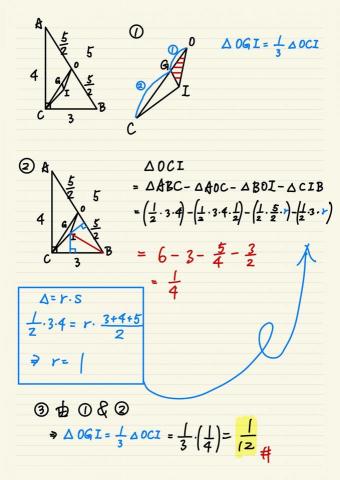 ①
△OGI = 1/3 △OCI
A
5/2
5
4
O
G
I
5/2
C
3
B
①
O
G
②
I
C
②
A
5/2
5
4
O
G
I
5/2
C
3
B
△OCI
= △ABC - △AOC - △BOI - △CIB
= (1/2 · 3 · 4) - (1/2 · 3 · 4 · 1/2) - (1/2 · 5/2 · r) - (1/2 · 3 · r)
= 6 - 3 - 5/4 - 3/2
= 1/4
△ = r · s
1/2 · 3 · 4 = r · (3+4+5)/2
⇒ r = 1
③ 由 ① & ②
⇒ △OGI = 1/3 △OCI = 1/3 · (1/4) = 1/12 #